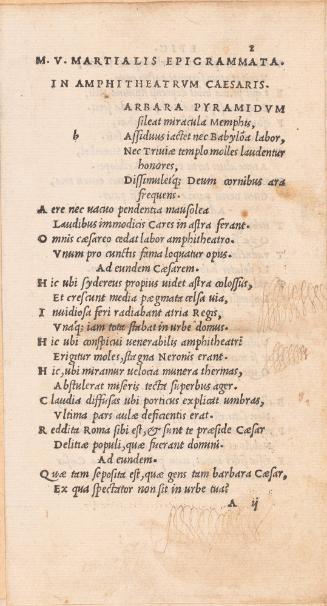 2
M. V. MARTIALIS EPIGRAMMATA.
IN AMPHITHEATRVM CAESARIS.
b ARBARA PYRAMIDVM
sileat miracula Memphis,
Assiduus iactet nec Babylõa labor,
Nec Triuiæ templo molles laudentur
honores,
Dissimuletq; Deum cornibus ara
frequens.
A ere nec uacuo pendentia mausolea
Laudibus immodicis Cares in astra ferant.
O mnis cæsareo cedat labor amphitheatro.
Vnum pro cunctis fama loquatur opus.
Ad eundem Cæsarem.
H ic ubi sydereus propius uidet astra colossus,
Et crescunt media pægmata celsa uia,
I nuidiosa feri radiabant atria Regis,
Vnaq; iam tota stabat in urbe domus.
H ic ubi conspicui uenerabilis amphitheatri
Erigitur moles, stagna Neronis erant.
H ic, ubi miramur uelocia munera thermas,
Abstulerat miseris tecta superbus ager.
C laudia diffusas ubi porticus explicat umbras,
Vltima pars aulæ deficientis erat.
R eddita Roma sibi est, & sunt te præside Cæsar
Delitiæ populi, quæ fuerant domini.
Ad eundem.
Q uæ tam seposita est, quæ gens tam barbara Cæsar,
Ex qua spectator non sit in urbe tua?
A ij